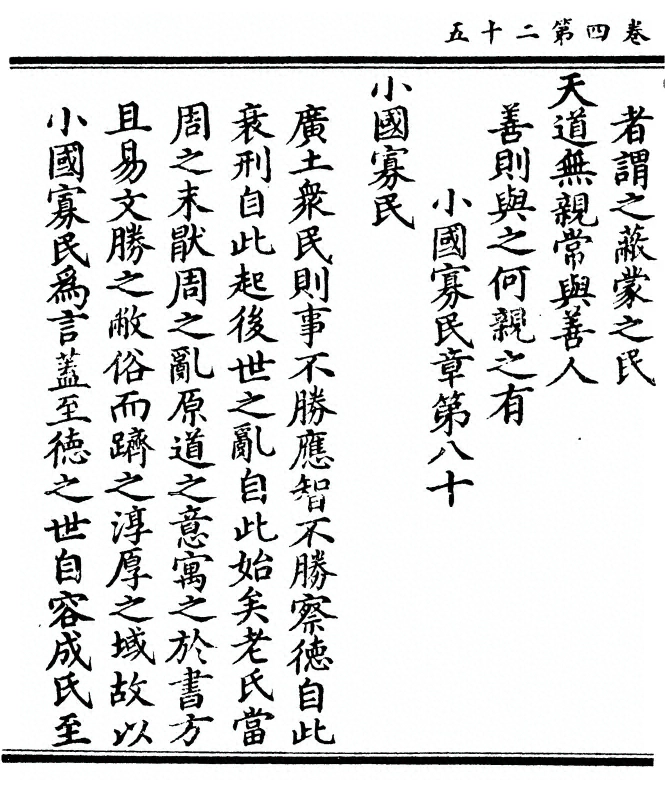 五十二第四卷
者謂之蔽蒙之民
天道無親常與善人
善則與之何親之有
小國寡民章第八十
小國寡民
廣土衆民則事不勝應智不勝察德自此
衰刑自此起後世之亂自此始矣老氏當
周之末厭周之亂原道之意寓之於書方
且易文勝之敝俗而躋之淳厚之域故以
小國寡民爲言蓋至德之世自容成氏至